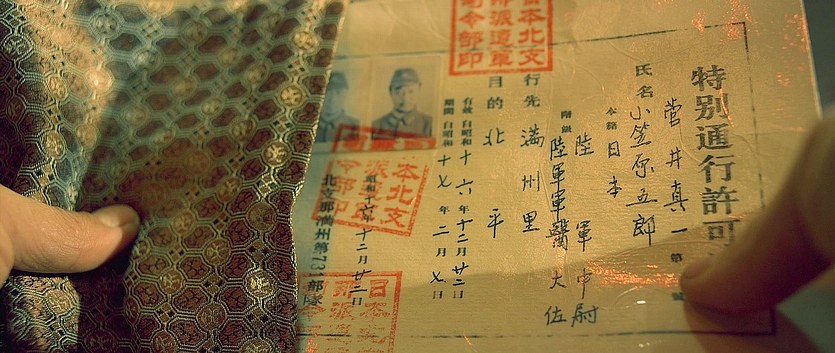 特別通行許可
菅井真一 第 號
氏名 小笠原五郎
本籍 日本
階級 陸軍中尉
陸軍軍醫大佐
行先 満州里
目的 北平
有效 自昭和十六年十二月廿二日
期間 自昭和十七年二月 日
昭和十六年十二月廿二日
北支那満州第731部隊
日本北支
那派遣軍
司令部印
本北支
派遣軍
令部印
日本北支
那派遣